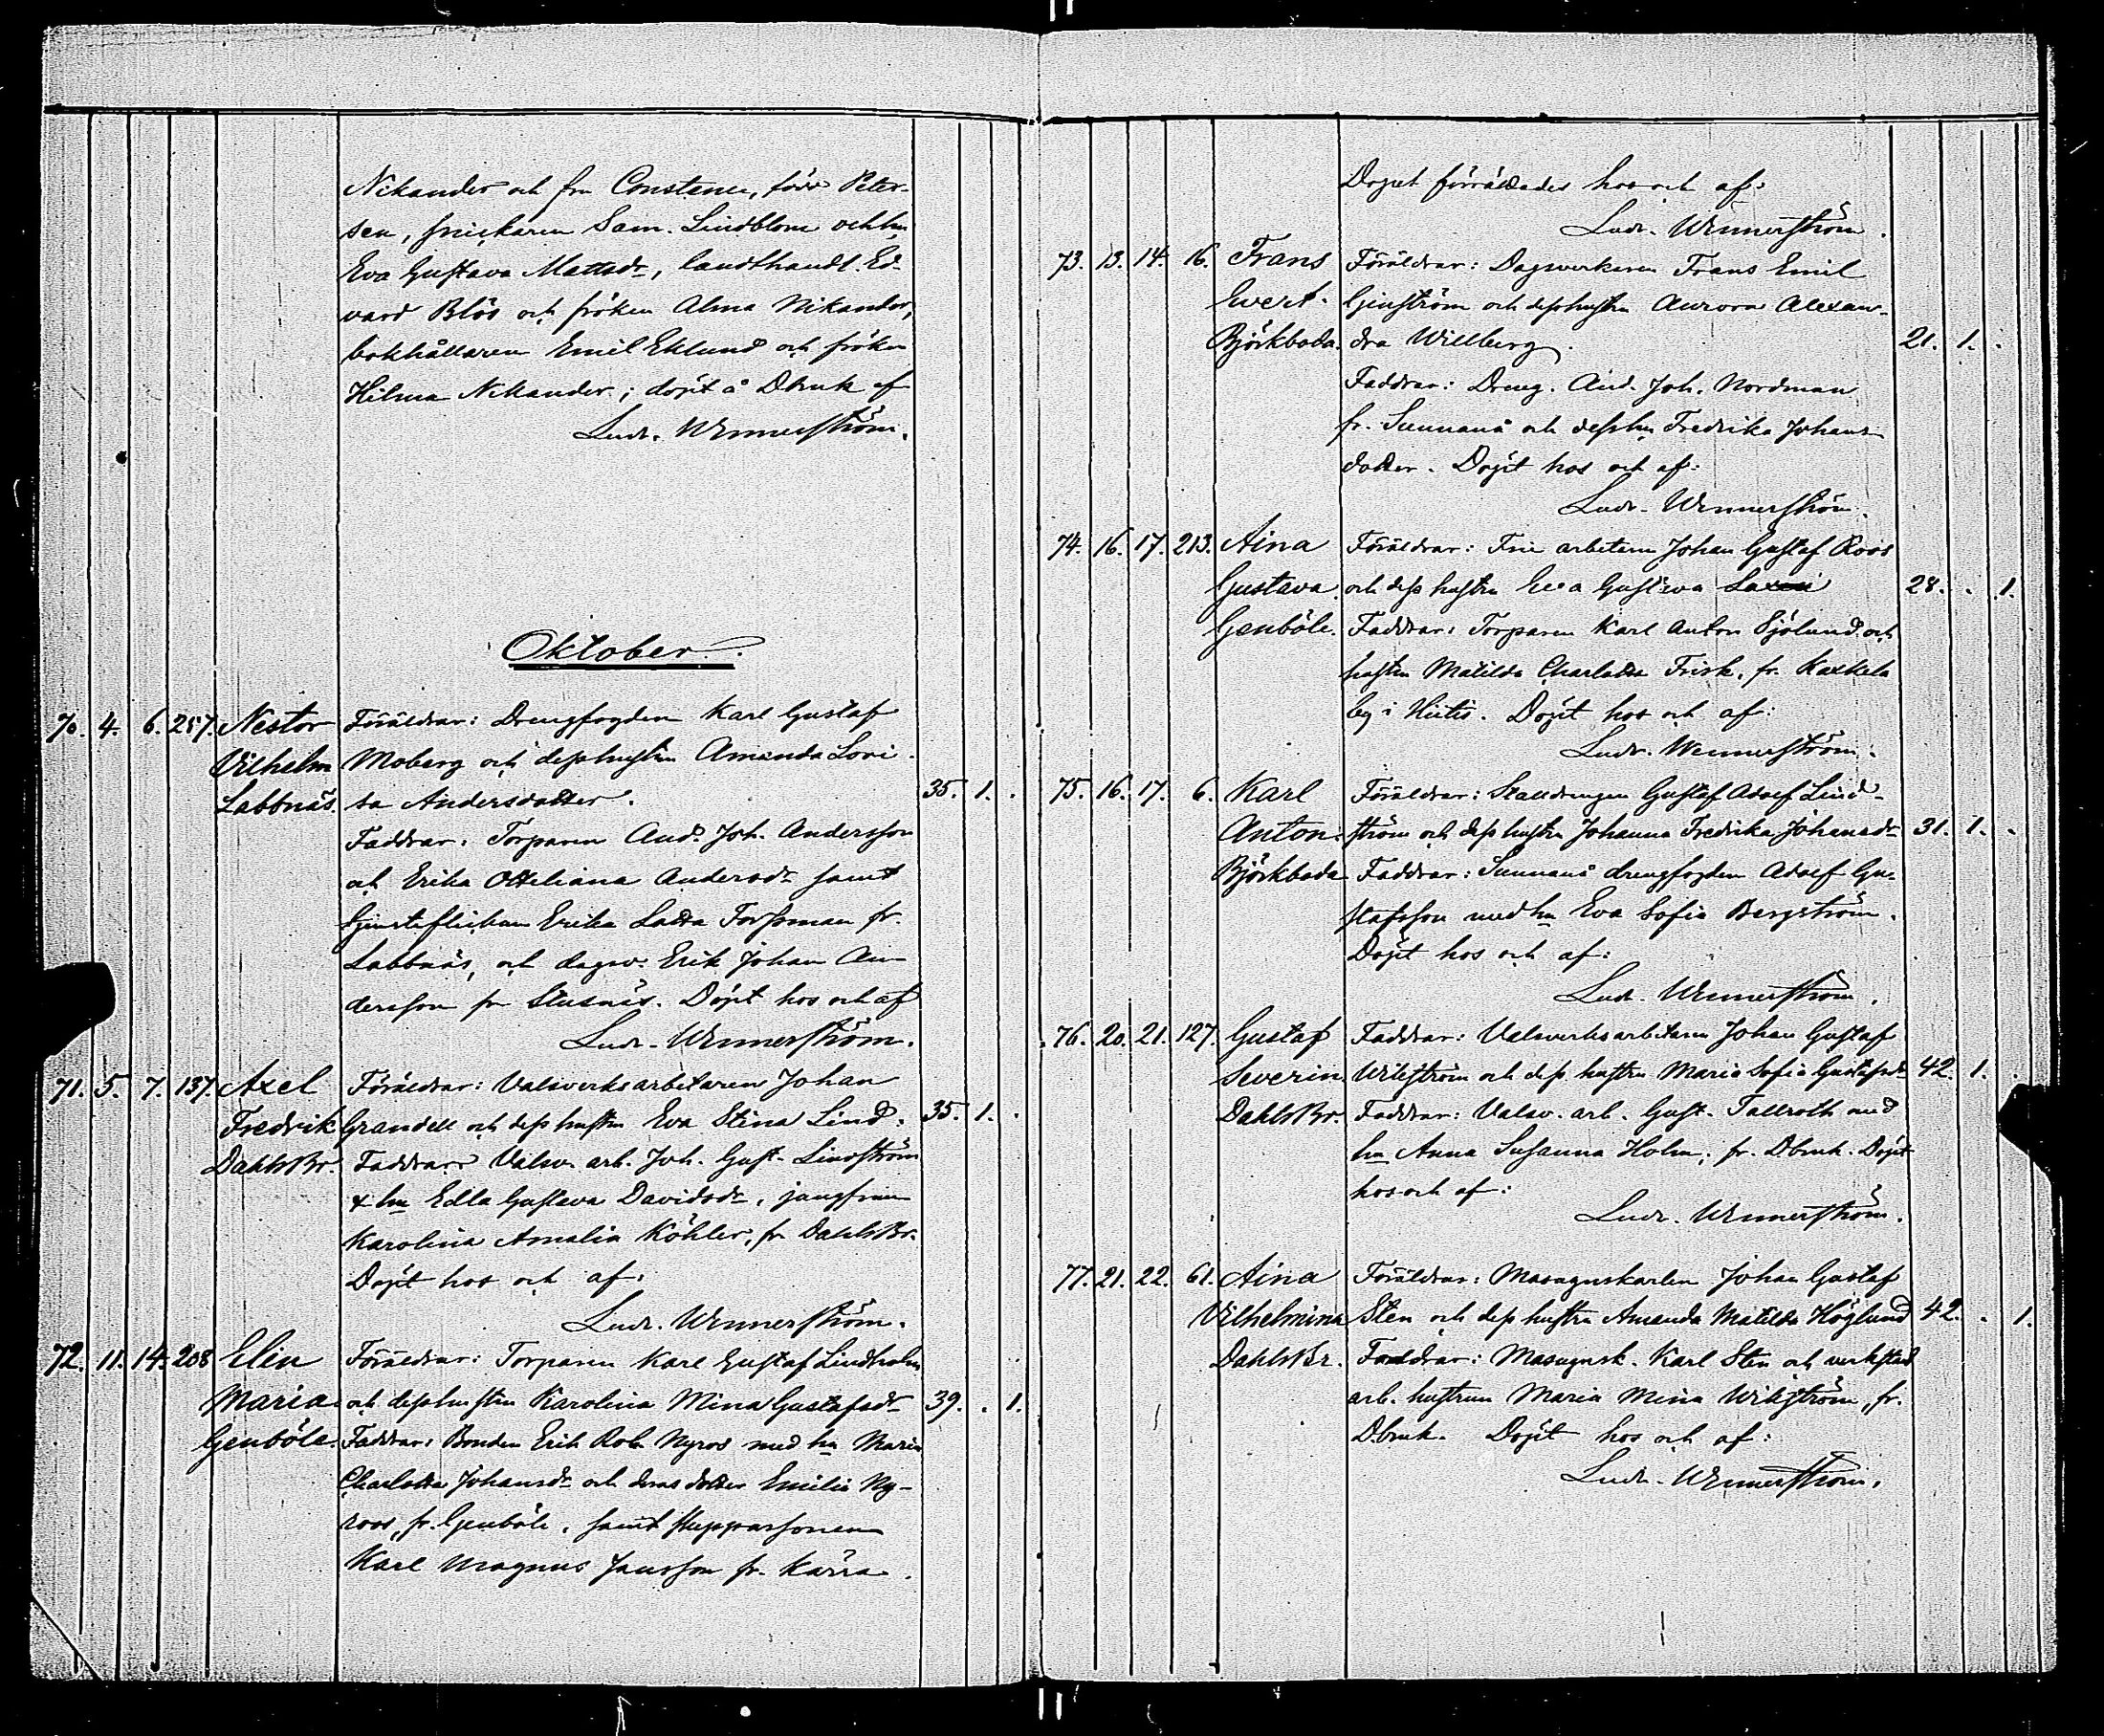 Nikander och fru Constance, född Peter-
sen, snickaren Sam. Lindblom och hu
Eva Gustava Mattsdr, landthandl. Ed-
vard Blös och fröken Alma Nikander,
bokhållaren Emil Eklund och fröken
Hilma Nikander; döpt å Dbruk af
Ludv. Wennerström.
Oktober.
70. 4. 6. 257. Nestor Föräldrar: Drengfogden Karl Gustaf
Vilhelm Moberg och dess hustru Amanda Lovi-
Labbnäs. sa Andersdotter. 35. 1. .
Faddrar: Torparen And. Joh. Andersson
och Erika Otteliana Andersdr samt
tjensteflickan Erika Lotta Forssman fr.
Labbnäs, och dagsv. Erik Johan An-
dersson fr Stusnäs. Döpt hos och af
Ludv. Wennerström.
71. 5. 7. 137. Axel Föräldrar: Valsverksarbetaren Johan
Fredrik Grandell och dess hustru Eva Stina Lind. 35. 1. .
DahlsBr. Faddrar: Valsv. arb. Joh. Gust. Lindström
& hu Edla Gustava Davidsdr, jungfrun
Karolina Amalia Köhler, fr DahlsBr.
Döpt hos och af:
Ludv. Wennerström.
72. 11. 14. 208 Elin Föräldrar: Torparen Karl Gustaf Lindholm
Maria och dess hustru Karolina Mina Gustafsdr 39. . 1.
Genböle. Faddrar: Bonden Erik Rob. Nyroos med hu Maria
Charlotta Johansdr och deras dotter Emilia Ny-
roos, fr. Genböle, samt
Karl Magnus Jansson fr. Kärra.
Dopet förrättades hos och af:
Ludv. Wennerström.
73. 13. 14. 16. Frans Föräldrar: Dagsverkaren Frans Emil
Evert. och dess hustru Aurora Alexan-
Björkboda. dra Willberg. 21. 1. .
Faddrar: Dreng. And. Joh. Nordman
fr. Sunnanå och dess hu Fredrika Johans-
dotter. Döpt hos och af:
Ludv. Wennerström.
74. 16. 17. 213. Aina Föräldrar: Frie arbetaren Johan Gustaf Roos
Gustava och dess hustru Eva Gustava 28. . 1.
Genböle. Faddrar: Torparen Karl Anton Sjölund och
hustru Matilda Charlotta Frisk, fr. Kaxkela
by i Hiitis. Döpt hos och af:
Ludv. Wennerström.
75. 16. 17. 6. Karl Föräldrar: Stalldrengen Gustaf Adolf Lind-
Anton. ström och dess hustru Johanna Fredrika Johansdr 31. 1. .
Björkboda Faddrar: Sunnanå drengfogden Adolf Gu-
stafsson med hu Eva Sofia Bergström.
Döpt hos och af:
Ludv. Wennerström.
76. 20. 21. 127. Gustaf Faddrar: Valsverksarbetaren Johan Gustaf
Severin Wikström och dess hustru Maria Sofia Gustafsdr 42. 1. .
DahlsBr. Faddrar: Valsv. arb. Gust. Tallroth med
hu Anna Susanna Holm, fr. Dbruk. Döpt
hos och af:
Ludv. Wennerström.
77. 21. 22. 61. Aina Föräldrar: Masugnskarlen Johan Gustaf
Vilhelmina Sten och dess hustru Amanda Matilda Höglund 42. . 1.
DahlsBr. Faddrar: Masugnsk. Karl Sten och verkstad
arb. hustrun Maria Mina Wikström, fr.
Dbruk. Döpt hos och af:
Ludv. Wennerström.